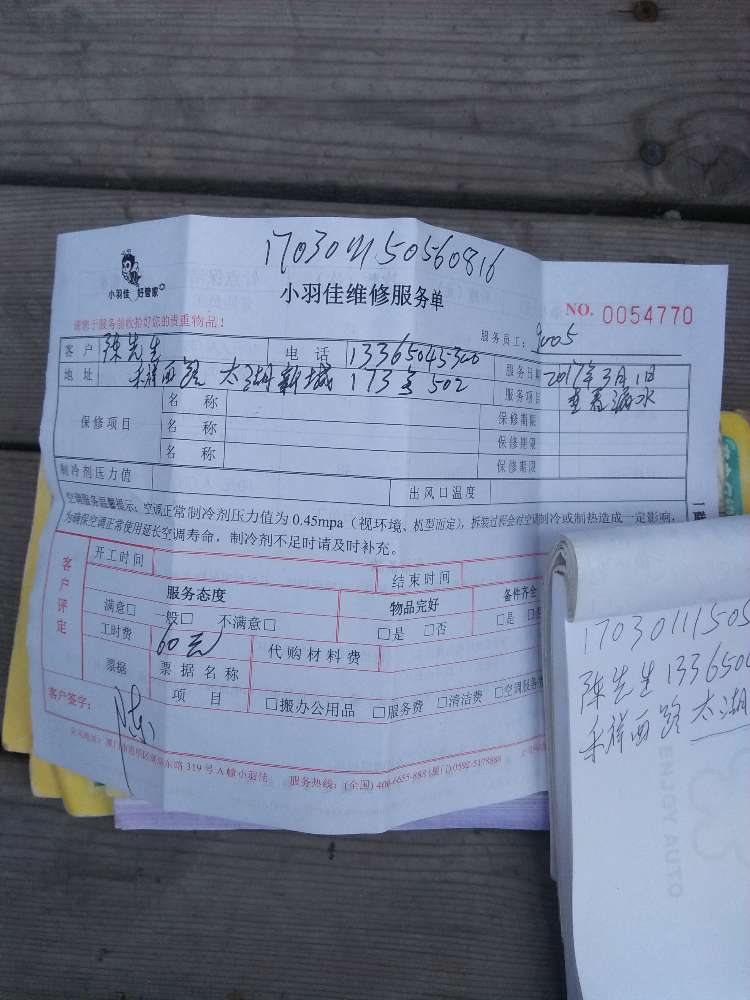 小羽佳 好管家
小羽佳维修服务单
NO. 0054770
请您于服务前收拾好您的贵重物品!
服务员工: 9005
客户 陈先生 电话 服务日期 2017年3月1日
地址 禾祥西路 太湖新城 173号 502 服务项目 查看漏水
保修项目
名称 保修期限
名称 保修期限
名称 保修期限
制冷剂压力值 出风口温度
空调服务温馨提示:空调正常制冷剂压力值为 0.45mpa(视环境、机型而定),拆装过程会对空调制冷或制热造成一定影响,
为确保空调正常使用延长空调寿命,制冷剂不足时请及时补充。
客户评定
开工时间 结束时间
服务态度 物品完好 备件齐全
满意□ 一般□ 不满意□ □是 □否 □是
工时费 60元 代购材料费
票据 票据名称
项目 □搬办公用品 □服务费 □清洁费 □空调服务
客户签字:
319号A幢小羽佳 服务热线:(全国)400-6655-888 (厦门)0592-5178888
17030111505
陈先生 133650
禾祥西路 太湖